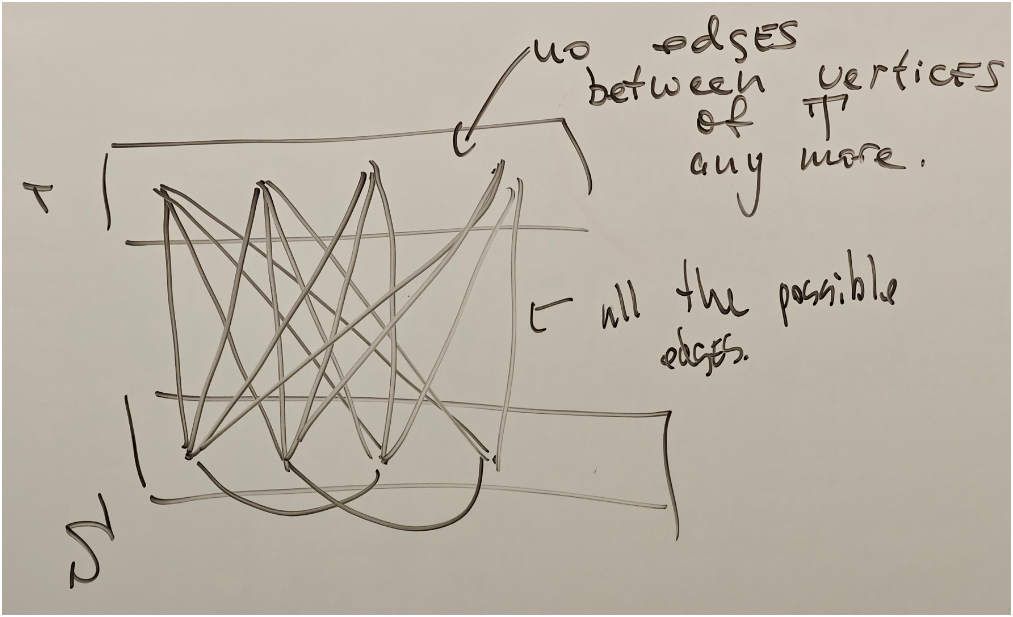 no edges
between vertices
of T
any more.
T
all the possible
edges.
S